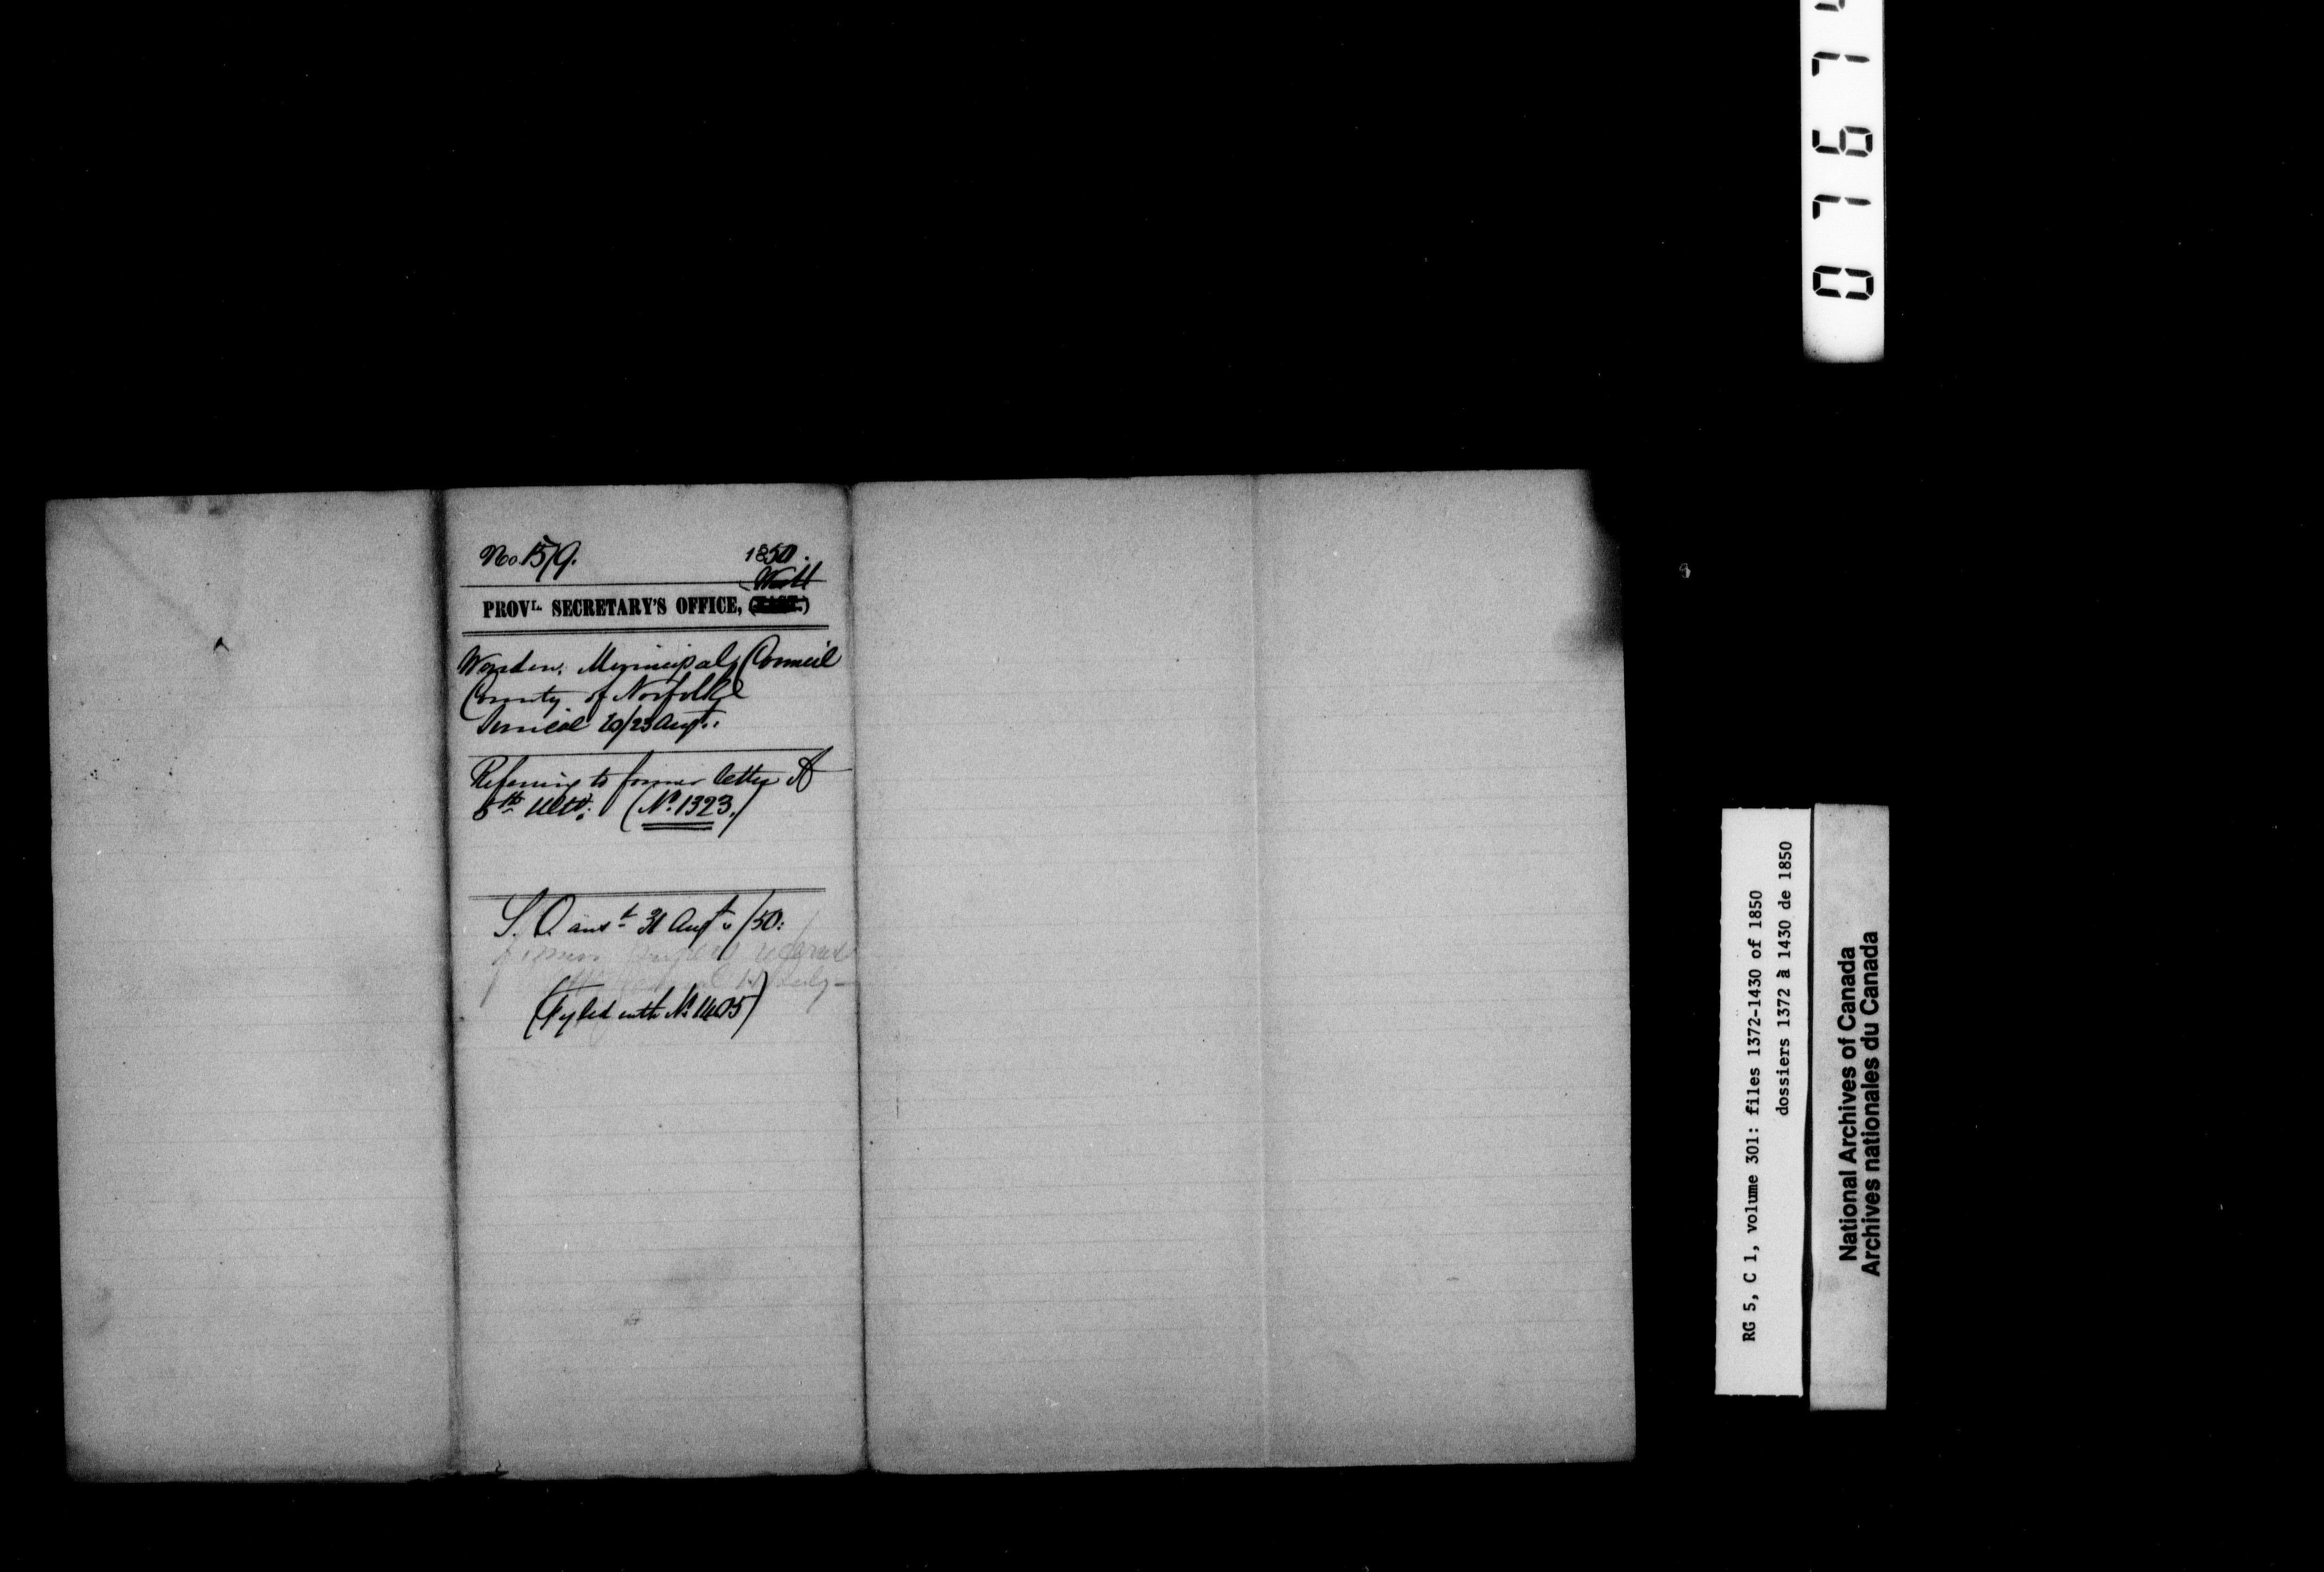 No 1519.
1850.
West
PROVL. SECRETARY'S OFFICE,
Warden, Municipal Council
County of Norfolk
Simcoe 20/23 Augt.
Referring to former letter of
8th Ulto. (No. 1323.)
S. O. anst 31 Augt /50.
former papers referred
July
(Fyled with No 1405)
RG 5, C 1, volume 301: files 1372-1430 of 1850
dossiers 1372 à 1430 de 1850
National Archives of Canada
Archives nationales du Canada